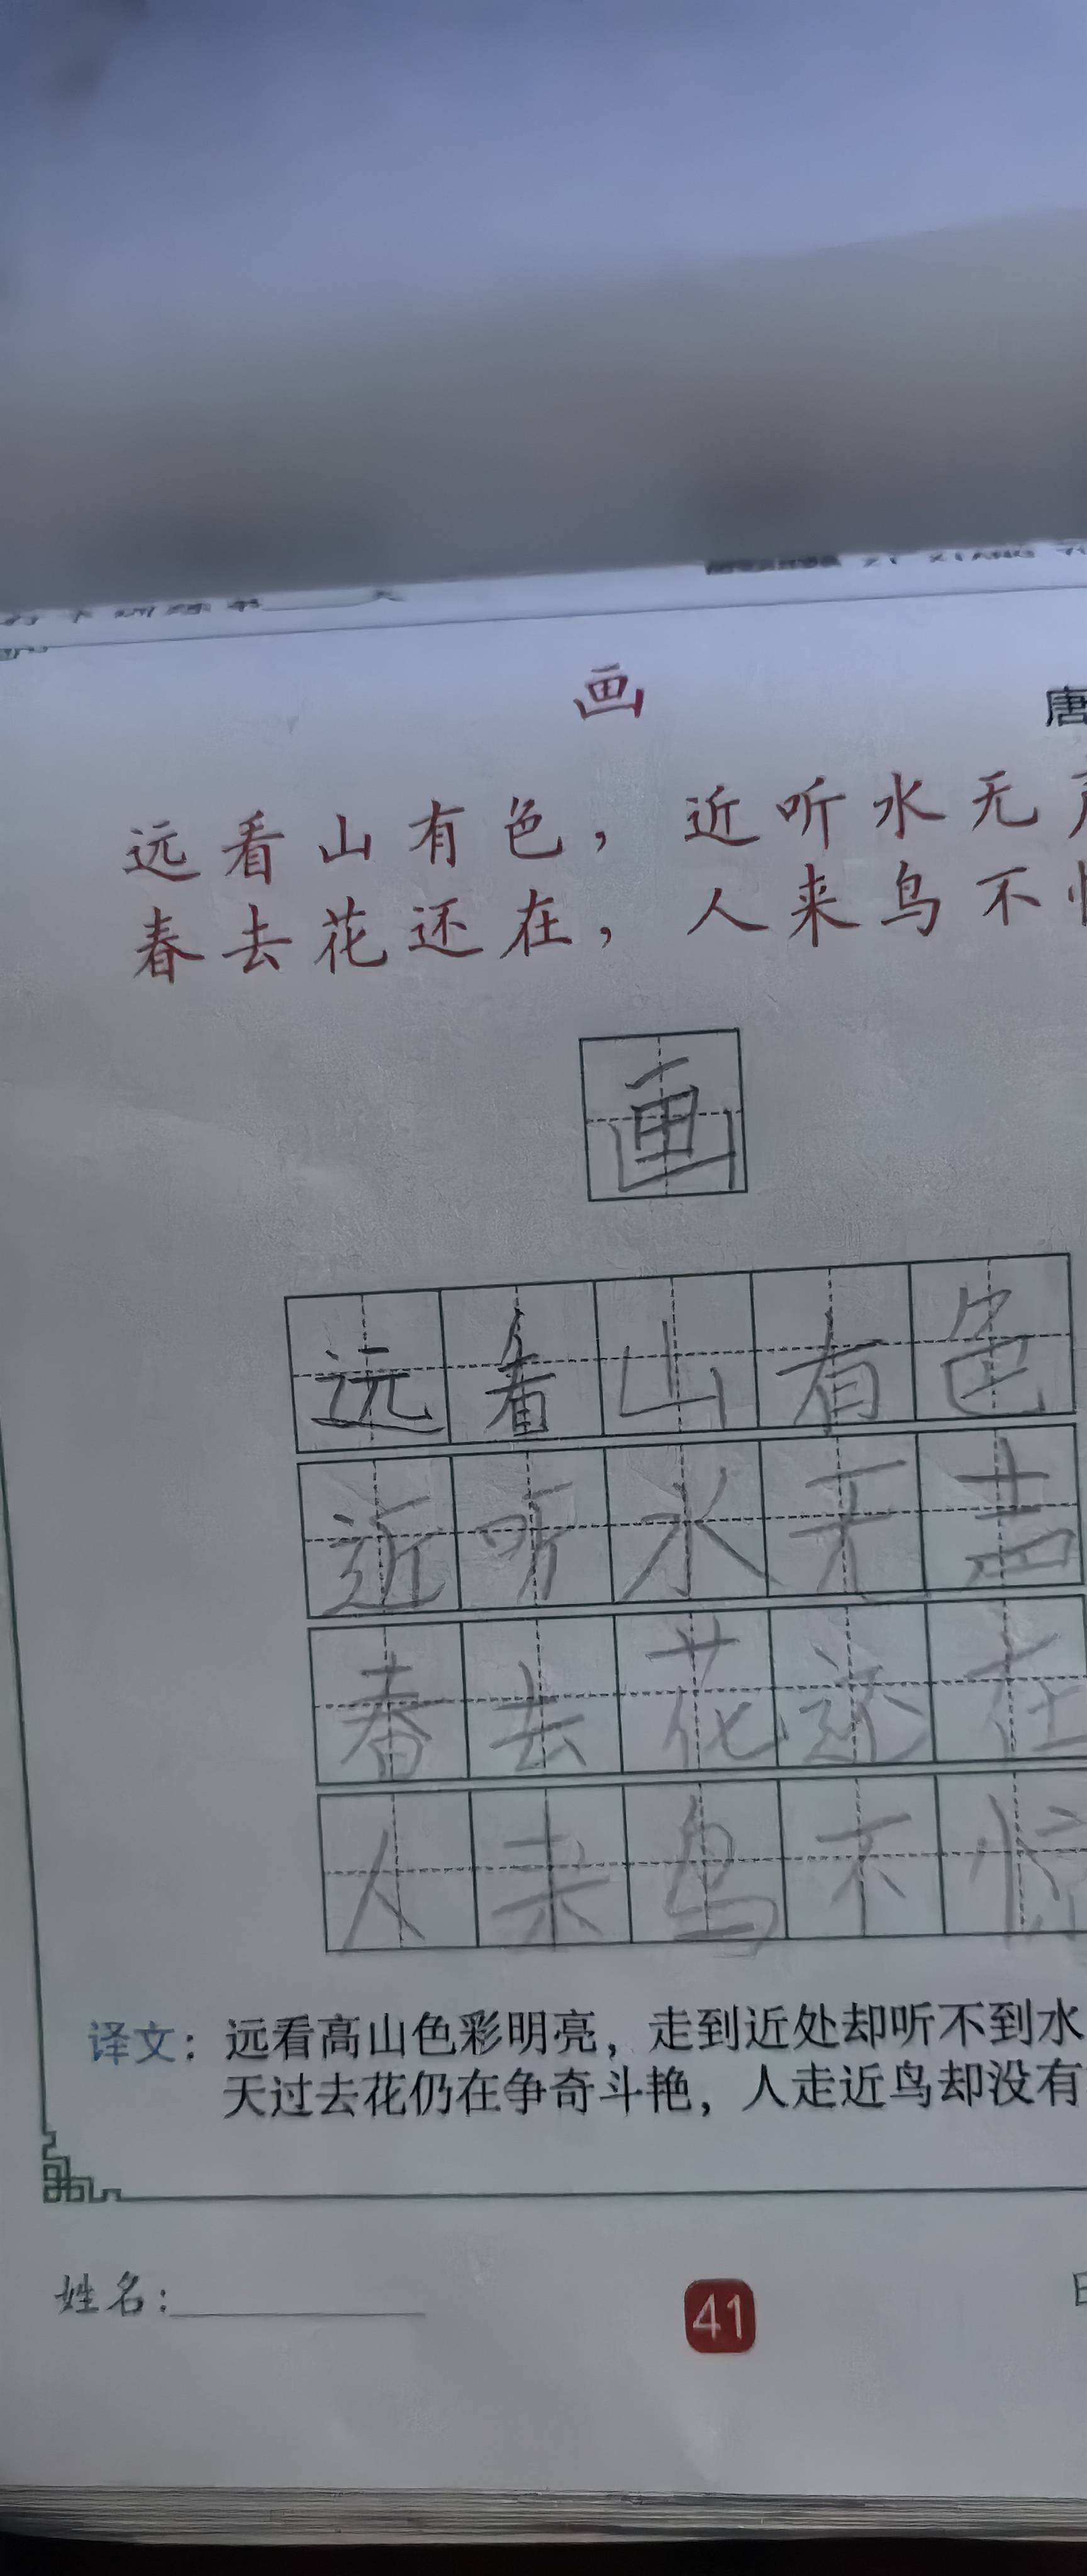 画
唐
远看山有色，近听水无
春去花还在，人来鸟不
画
远看山有色
近听水无声
春去花还在
人来鸟不惊
译文：远看高山色彩明亮，走到近处却听不到水
天过去花仍在争奇斗艳，人走近鸟却没有
姓名：
41